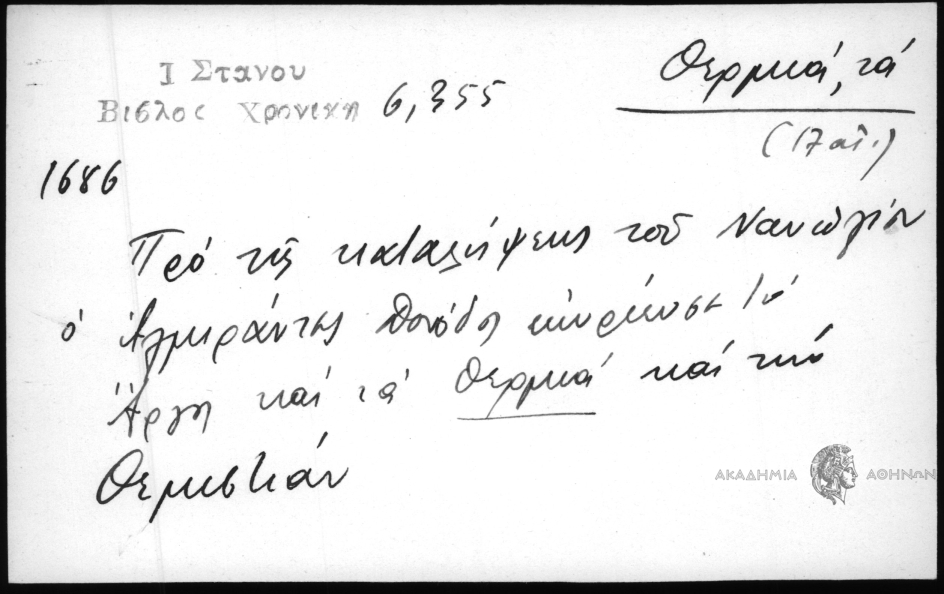 Ι Στανου
Βιβλος Χρονικη 6,355
Θερμιά, τά
(17 αἰ.)
1686
Πρό τῆς καταλήψεως τοῦ Ναυπλίου
ὁ Ἀλμιράντες ἐκυρίευσε τό
Ἄργος καί τά Θερμιά καί τήν
ΑΚΑΔΗΜΙΑ ΑΘΗΝΩΝ